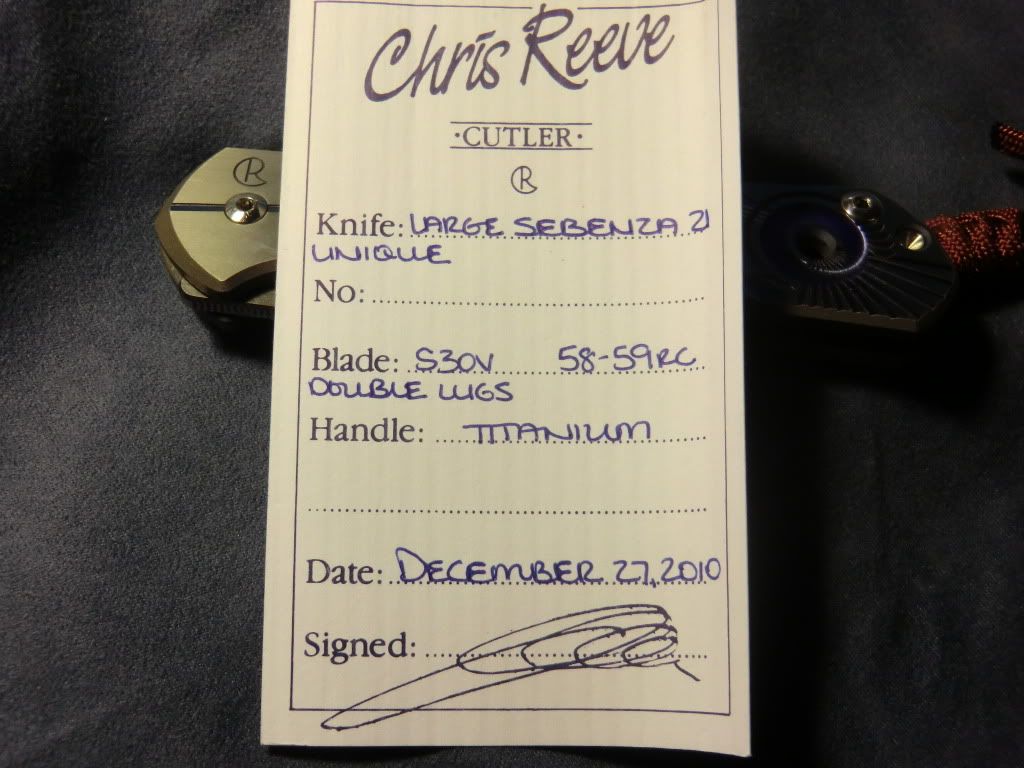 Chris Reeve
·CUTLER·
R
R
Knife: LARGE SEBENZA 21
UNIQUE
No:
Blade: S30V 58-59RC
DOUBLE LUGS
Handle: TITANIUM
Date: DECEMBER 27, 2010
Signed: